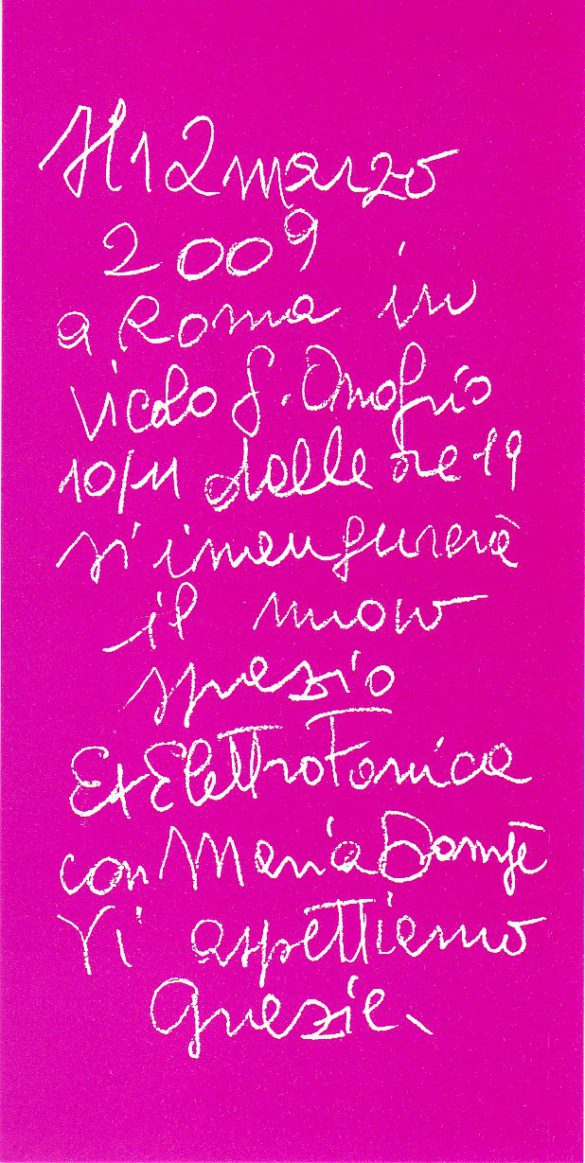 Il 12 marzo
2009
a Roma in
Vicolo S. Onofrio
10/11 dalle ore 19
si inaugurerà
il nuovo
spazio
Ex Elettrofonica
con Maria
Vi aspettiamo
Grazie